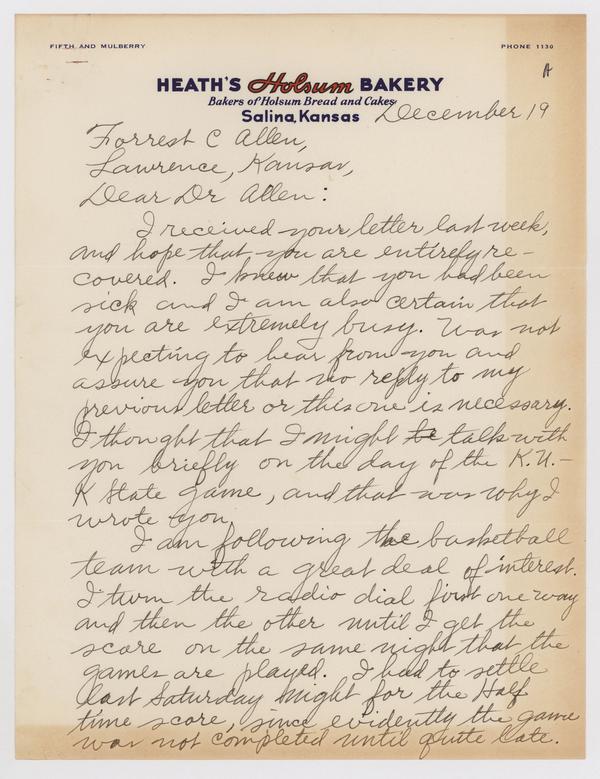 FIFTH AND MULBERRY
PHONE 1130
A
HEATH'S Holsum BAKERY
Bakers of Holsum Bread and Cakes
Salina, Kansas
December 19
Forrest C Allen,
Lawrence, Kansas,
Dear Dr Allen:
I received your letter last week,
and hope that you are entirely re-
covered. I knew that you had been
sick and I am also certain that
you are extremely busy. Was not
expecting to hear from you and
assure you that no reply to my
previous letter or this one is necessary.
I thought that I might be talk with
you briefly on the day of the K.U.-
K State game, and that was why I
wrote you.
I am following the basketball
team with a great deal of interest.
I turn the radio dial first one way
and then the other until I get the
score on the same night that the
games are played. I had to settle
last Saturday night for the Half
time score, since evidently the game
was not completed until quite late.